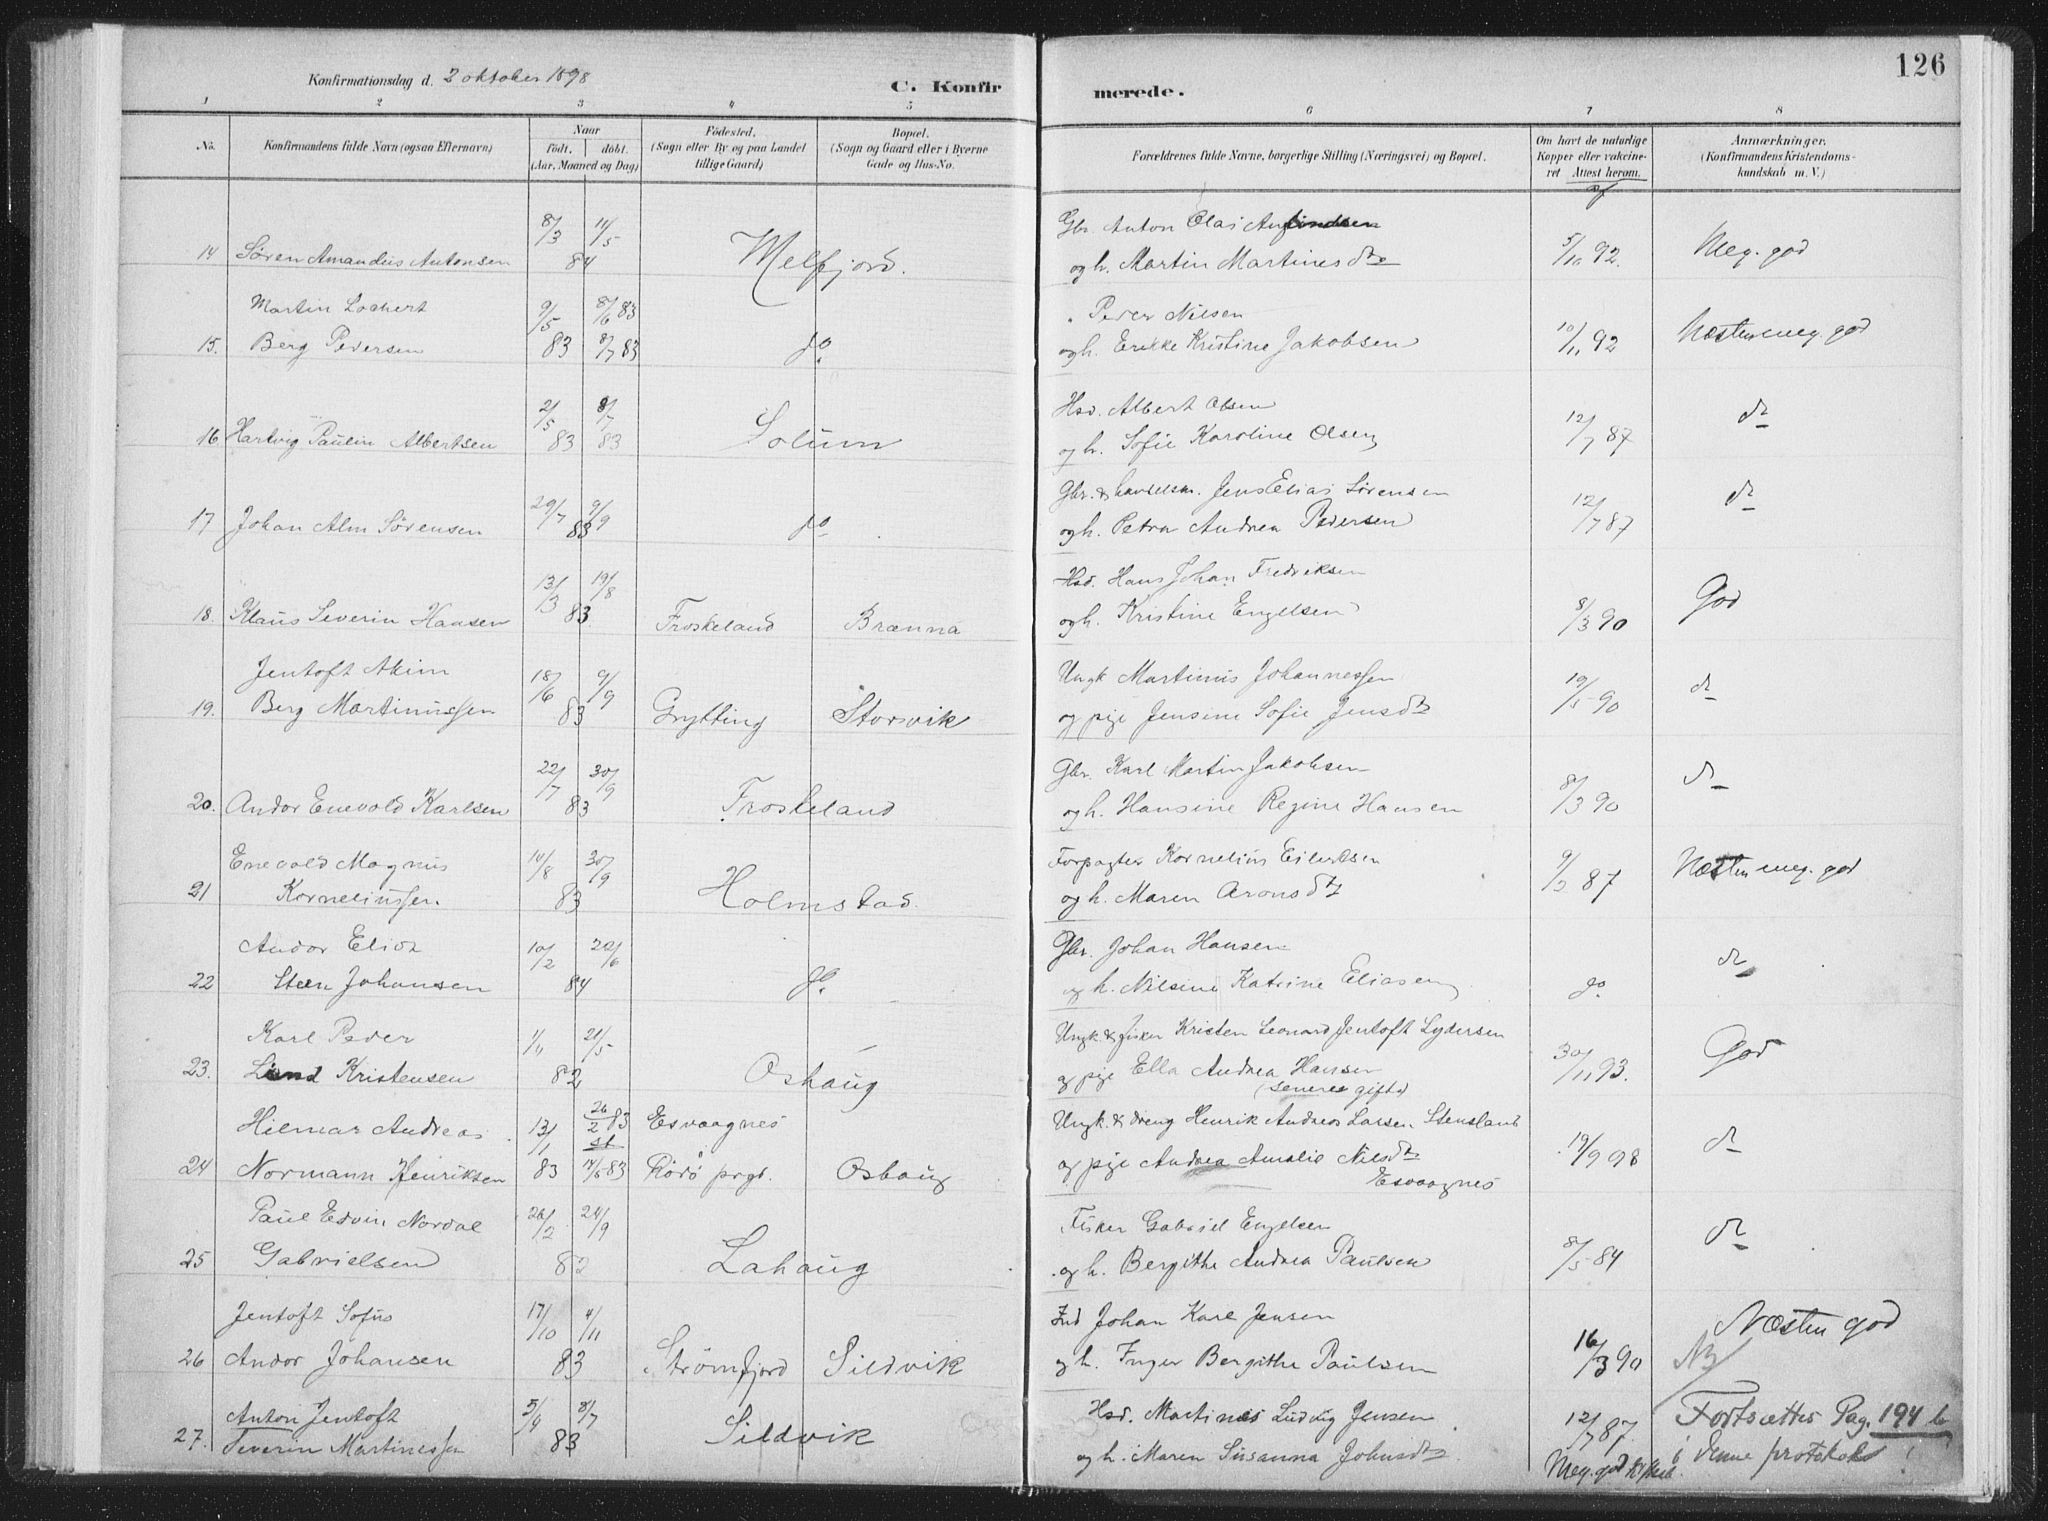 126
Konfirmationsdag d. 2 oktober 1898
C. Konfirmerede.
1 2 3 4 5 6 7 8
No. Konfirmandens fulde Navn (ogsaa Efternavn) Naar født. døbt. (Aar, Maaned og Dag) Fødested. (Sogn eller By og paa Landet tillige Gaard) Bopæl. (Sogn og Gaard eller i Byerne Gade og Hus-No. Forældrenes fulde Navne, borgerlige Stilling (Næringsvei) og Bopæl. Om havt de naturlige Kopper eller vakcineret Attest herom. Anmærkninger. (Konfirmandens Kristendomskundskab m. V.)
8/3 11/5 Gbr. Anton Olai
14 Søren Amandus Antonsen 84 Melfjord. og h. Martin Martines dtr 5/10 92. Meg. god
Martin Lockert 9/5 8/6 83 Peder Nilsen
15. Berg Pedersen 83 8/7 83 do. og h. Erikke Kristine Jakobsen 10/11 92 Næsten meg. god
2/5 8/7 Hsd. Albert Olsen
16 Hartvig Paulin Albertsen 83 83 Solum og h. Sofie Karoline Olsen 12/7 87 do
29/7 9/9 Gbr. & handelsm. Jens Elias Sørensen
17 Johan Alm Sørensen 83 do og h. Petra Andrea Pedersen 12/7 87 do
13/3 19/8 Hsd. Hans Johan Fredriksen
18. Klaus Severin Hansen 83 Froskeland Brænna og h. Kristine Engelsen 8/3 90 God
Jentoft Akim 18/6 9/9 Ungk Martinus Johannessen
19. Berg Martinussen 83 Grytting Storvik og pige Jensine Sofie Jensdtr 19/5 90 do
22/7 30/9 Gbr. Karl Martin Jakobsen
20. Andor Enevold Karlsen 83 Froskeland og h. Hansine Regine Hansen 8/3 90 do
Enevold Magnus 10/8 30/9 Forpagter Kornelius Eilertsen
21 Korneliussen 83 Holmstad. og h. Maren Aronsdtr 9/2 87 Næsten meg. god
Andor Elioz 10/2 20/6 Gbr. Johan Hansen
22 Steen Johansen 84 do. og h. Nilsine Katrine Eliasen do do
Karl Peder 1/11 21/5 Ungk. & fisker Kristen Leonard Jentoft Lydersen
23. Lund Kristensen 82 Oshaug og pige Ella Andrea Hansen 30/11 93. God
(senere gifte)
Hilmar Andreas 13/1 26/2 83 Esvaagnes Ungk. & dreng Henrik Andreas Larsen Stensland
st
24 Normann Henriksen 83 14/5 83 Rødø prgl. Oshaug og pige Andrea Amalie Nilsdtr 19/9 98 do
Esvaagnes
Paul Edvin Nordal 26/2 24/9 Fisker Gabriel Engelsen
25 Gabrielsen 82 Lahaug og h. Bergithe Andrea Paulsen 8/5 84 do
Jentoft Sofus 17/10 4/11 Ind Johan Karl Jensen Næsten god
26 Andor Johansen 83 Strømfjord Sildvik og h. Inger Bergithe Paulsen 16/3 90 NB
Anton Jentoft 5/4 8/7 Hsd. Martines Ludvig Jensen Fortsættes Pag. 194 b
27. Severin Martinessen 83 Sildvik og h. Maren Susanna Johnsdtr 12/7 87. i denne protokol!
Meg. god